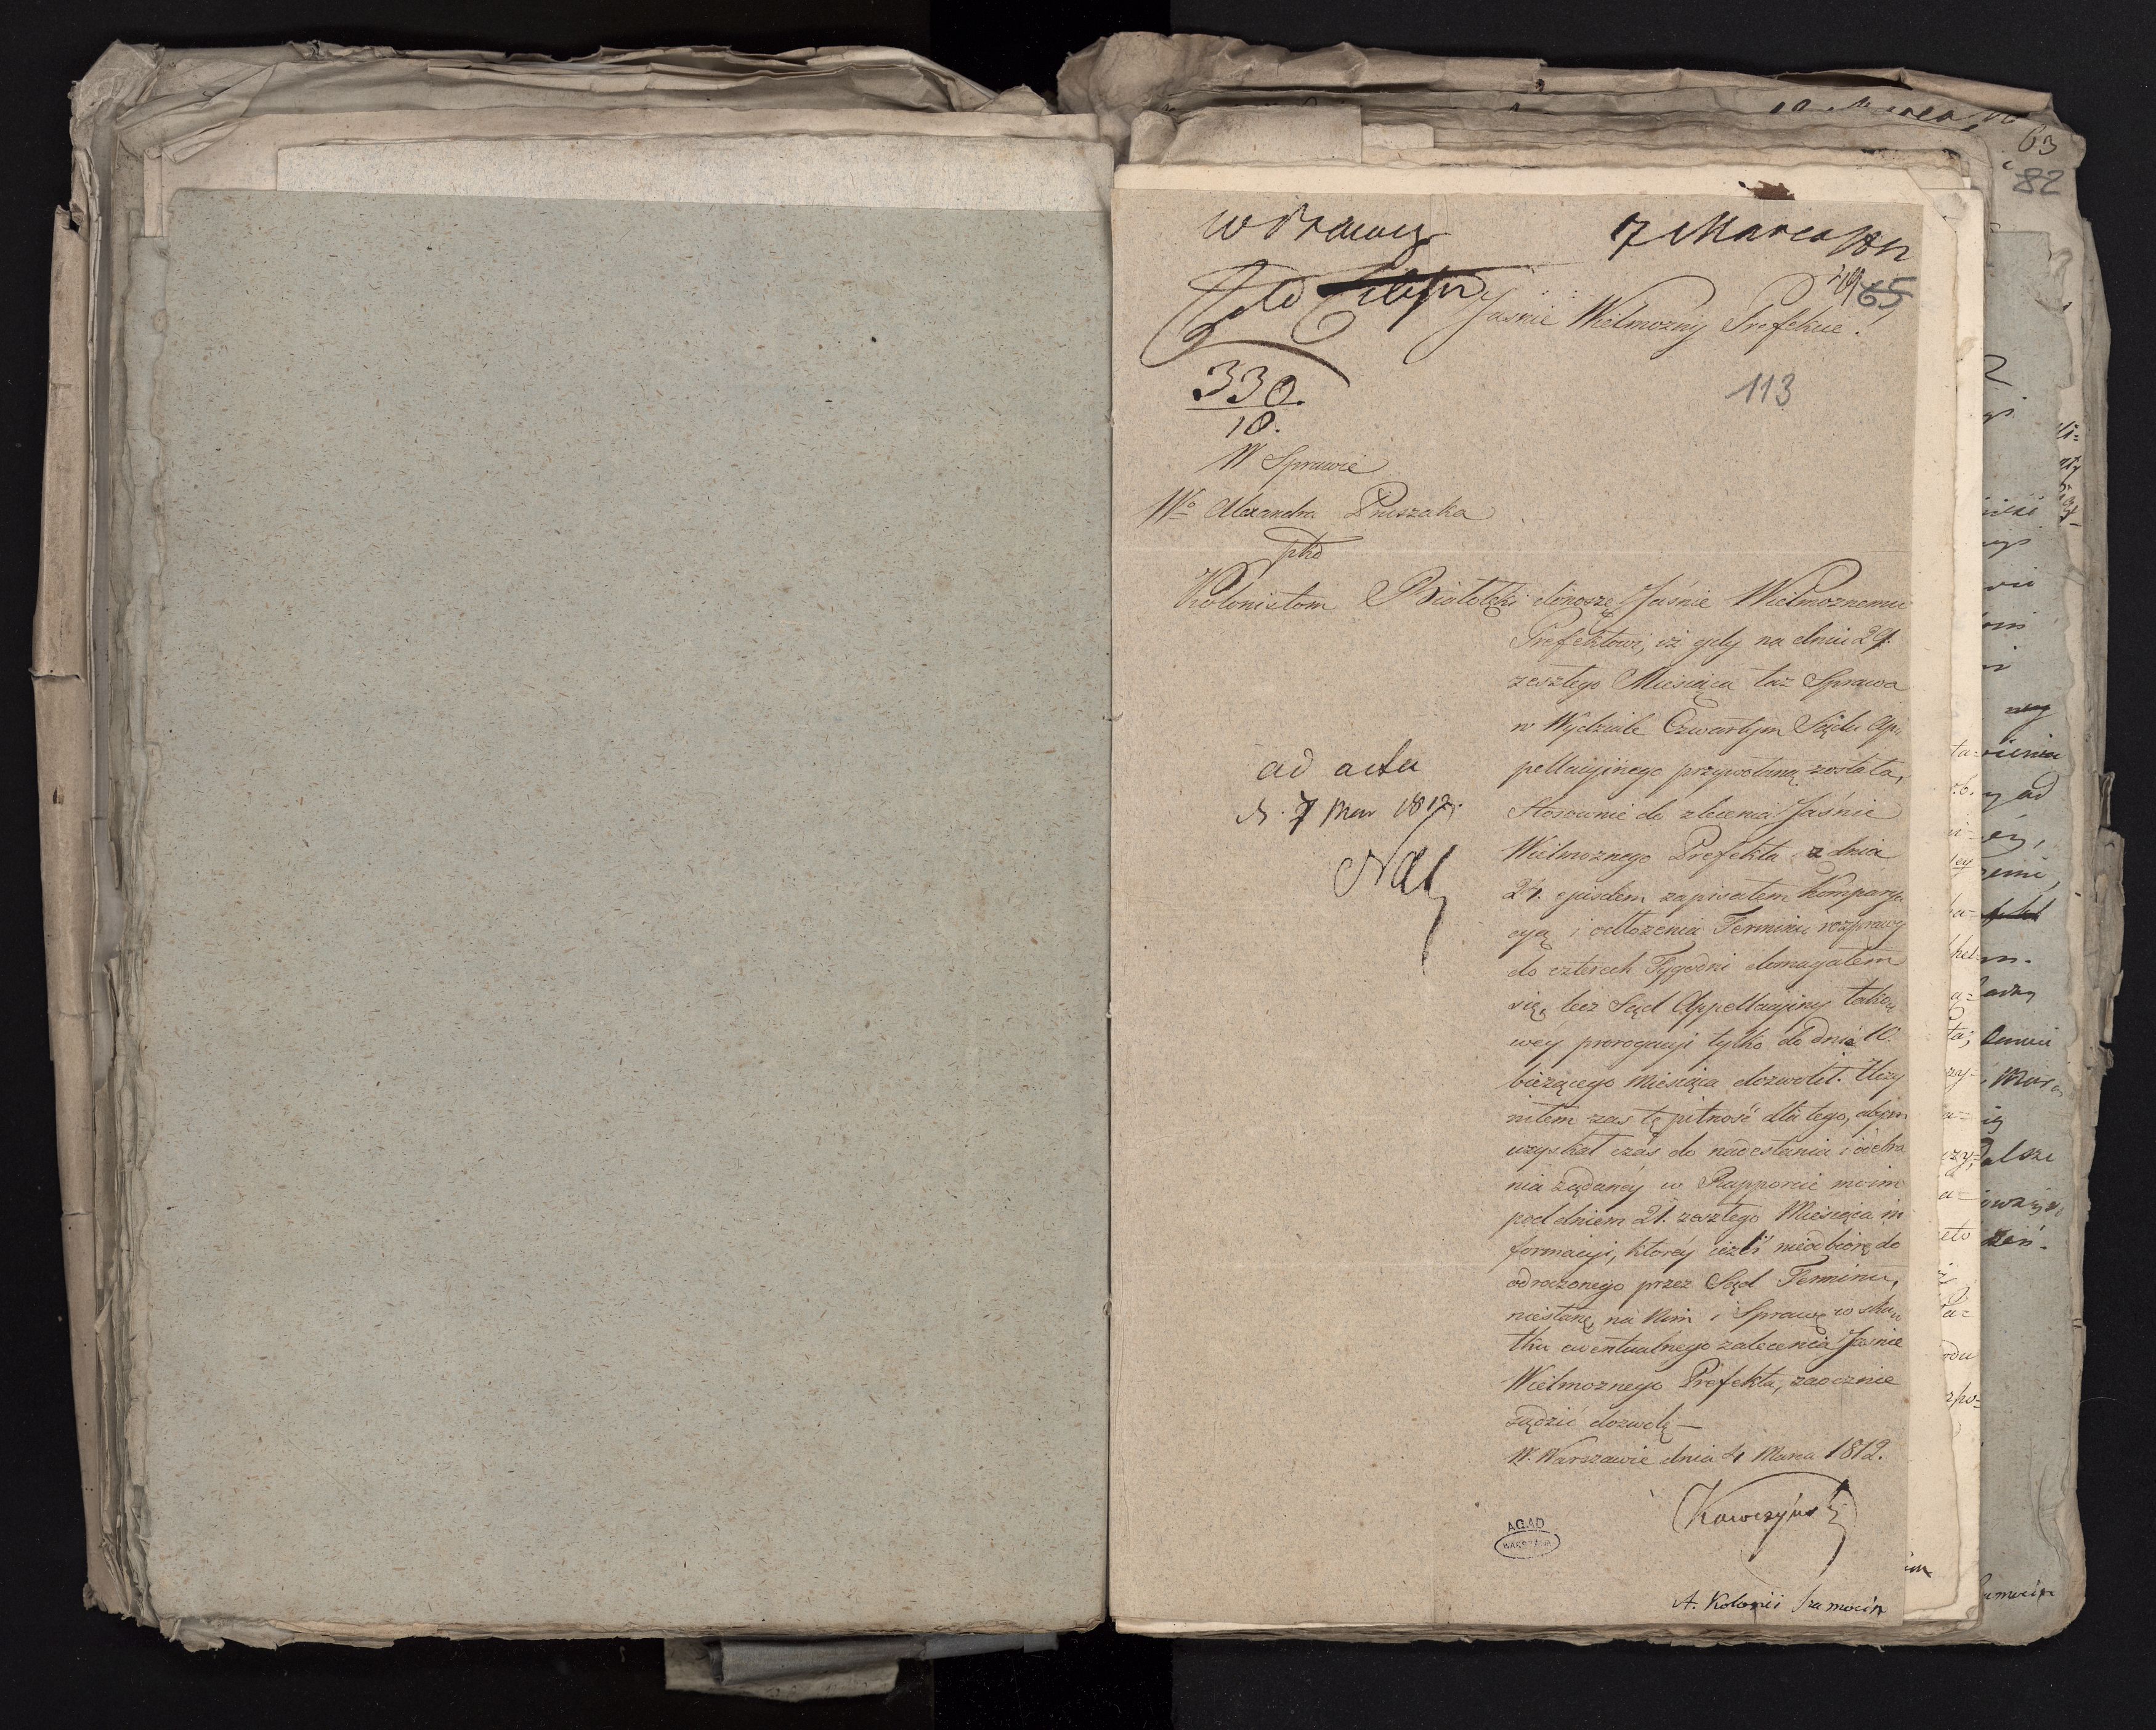 7 Marca 1812
65
Jaśnie Wielmożny Prefekcie!
113
330.
10.
W Sprawie
Wo Alexandra Pruszaka
ptko
Kolonistom Białołęki donoszę Jaśnie Wielmożnemu
Prefektowi, iż gdy na dniu 29.
zeszłego Miesiąca taż Sprawa
w Wydziale Czwartym Sądu Ap
pellacyjnego przywołaną została,
Stosownie do zlecenia Jaśnie
Wielmożnego Prefekta z dnia
24. ejusdem zapisałem Kompary
cyą i odłożenia Terminu rozprawy
do czterech Tygodni domagałem
się, lecz Sąd Appellacyjny tako
wey prorogacyi tylko do dnia 10.
bieżącego Miesiąca dozwolił. Uczy
niłem zaś tę pilność dla tego, abym
uzyskał czas do nadesłania i odebra
nia żądaney w Rapporcie moim
pod dniem 21. zeszłego Miesiąca in
formacyi, którey jeżli nieodbiorę do
odroczonego przez Sąd Terminu,
niestanę na nim i Sprawę w sku
tku ewentualnego zalecenia Jaśnie
Wielmożnego Prefekta, zaocznie
sądzić dozwolę —
W Warszawie dnia 4 Marca 1812.
Kawczyński
ad acta
d. 7 Mar 1812.
AGAD
WARSZAWA
A. Kolonii Szamocin
63
82